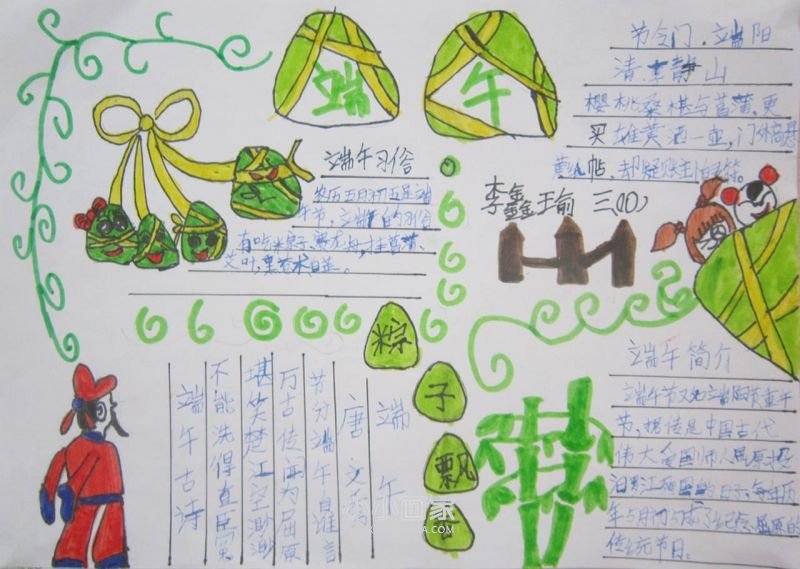 端
午
节令门，端阳
清 静山
樱桃桑椹与菖蒲，更
买雄黄酒一壶，门外高悬
黄纸帖，却疑账主怕灵符。
李鑫瑜 三(10)
端午习俗
农历五月初五是端
午节，端午的习俗
有吃粽子，赛龙舟，挂菖蒲、
艾叶，
粽
子
飘
端午
唐 文秀
节分端午自谁言
万古传闻为屈原
堪笑楚江空渺渺
不能洗得直臣冤
端午古诗
端午简介
端午节又知端阳节重午
节，相传是中国古代
伟大爱国诗人屈原投
汨罗江 的日子，每年历
年五月初五成了纪念屈原的
传统节日。